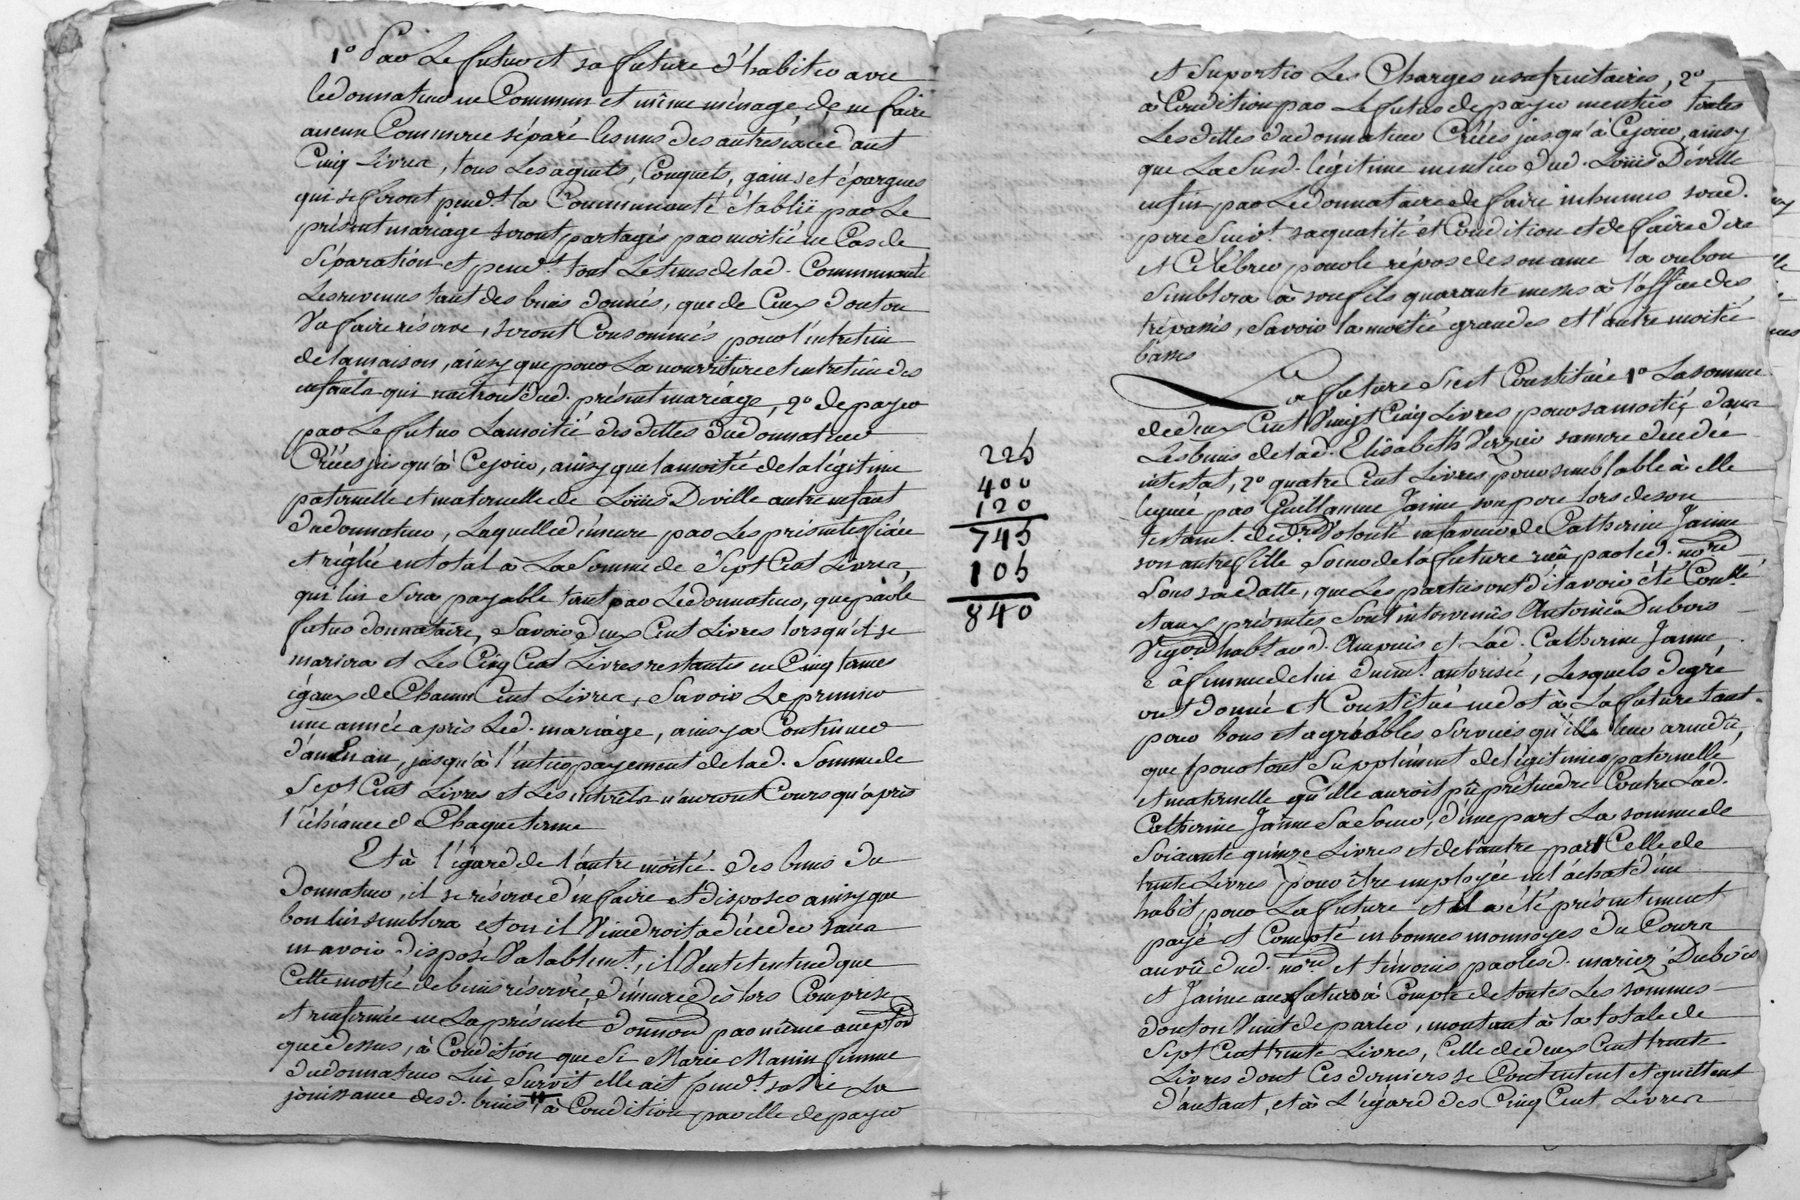 1° Par Le futur et sa future d'habiter avec
le donnateur en Commun et même ménage, de ne faire
aucun Commerce séparé les uns des autres excédant
Cinq Livres, tous Les aquets, Conquets, gains et épargnes
qui se feront pend.t la Communauté établie par Le
présent mariage seront partagés par moitié en Cas de
Séparation et pend.t tout Le tems de lad. Communauté
Les revenus tant des biens donnés, que de Ceux dont on
va faire réserve, seront Consommés pour l'entretien
de la maison, ainsy que pour La nourriture et entretien des
enfants qui naitront dud. présent mariage, 2° de payer
par Le futur La moitié des dettes du donnateur
Créées jusqu'à Cejour, ainsy que la moitié de la légitime
paternelle et maternelle de Louis Deville autre enfant
du donnateur, Laquelle demeure par Les présentes fixée
et réglée en total à La Somme de Sept Cent Livres,
qui lui Sera payable tant par Le donnateur, que par le
futur donnataire, Savoir deux Cent Livres lorsqu'il se
mariera et Les Cinq Cent Livres restantes en Cinq termes
égaux de Chacun Cent Livres, Savoir Le premier
une année après Led. mariage, ainsy à Continuer
d'an En an, jusqu'à l'entier payement de lad. Somme de
Sept Cent Livres et Les intérêts n'auront Cours qu'après
l'échéance de Chaque terme
Et à l'égard de l'autre moitié des biens du
donnateur, il se réserve d'en faire et disposer ainsy que
bon lui semblera et où il Viendroit à décéder sans
en avoir disposé Valablem.t, il Veut et entend que
Cette moitié de biens réservée, demeure dès lors Comprise
et renfermée en La présente donnaon par même
que dessus, à Condition que Si Marie Manin femme
du donnateur Lui Survit elle ait pend.t sa Vie La
jouissance desd. biens à Condition par elle de payer
et Suporter Les Charges usufruitaires, 2°
à Condition par Le futur de payer toutes
Les dettes du donnateur Créées jusqu'à Cejour, ainsy
que La Susd. légitime dud. Louis Deville
enfin par Le donnataire de faire inhumer sond.
pere Suiv.t sa qualité et Condition et de faire dire
et Célébrer pour le répos de son ame là ou bon
Semblera à son fils quarante messes à l'office des
trépassés, Savoir la moitié grandes et l'autre moitié
basses
La future S'est Constituée 1° La somme
de deux Cent Vingt Cinq Livres pour sa moitié dans
Les biens de lad. Elisabeth Verzier sa mere décédée
intestat, 2° quatre Cent Livres pour semblable à elle
léguée par Guillaume Janine son pere lors de son
testam.t de d.re Volonté en faveur de Catherine Janine
son autre fille Soeur de la future reçu par led. no.re
Sous sa datte, que Les parties ont dit avoir été Contrôlé
et aux présentes Sont intervenus Antoine Dubois
Vigneron hab.t aud. Ampuis et Lad. Catherine Janine
Sa femme de lui duem.t autorisée, Lesquels de gré
ont donné et Constitué en dot à La future tant
pour bons et agréables Services qu'elle leur a rendu,
que pour tout Supplément de légitimes paternelle
et maternelle qu'elle auroit pû prétendre Contre Lad.
Catherine Janine Sa Soeur, d'une part La somme de
Soixante quinze Livres et de l'autre part Celle de
trente Livres pour être employée en l'achat d'un
habit pour La future et a été présentement
payé et Compté en bonnes monnoyes du Cours
au vû dud. no.re et témoins par lesd. mariez Dubois
et Janine aux futurs à Compte de toutes Les sommes
dont on Vient de parler, montant à la totale de
Sept Cent trente Livres, Celle de deux Cent trente
Livres dont Ces derniers se Contentent et quittent
d'autant, et à L'égard des Cinq Cent Livres
225
400
120
745
105
840